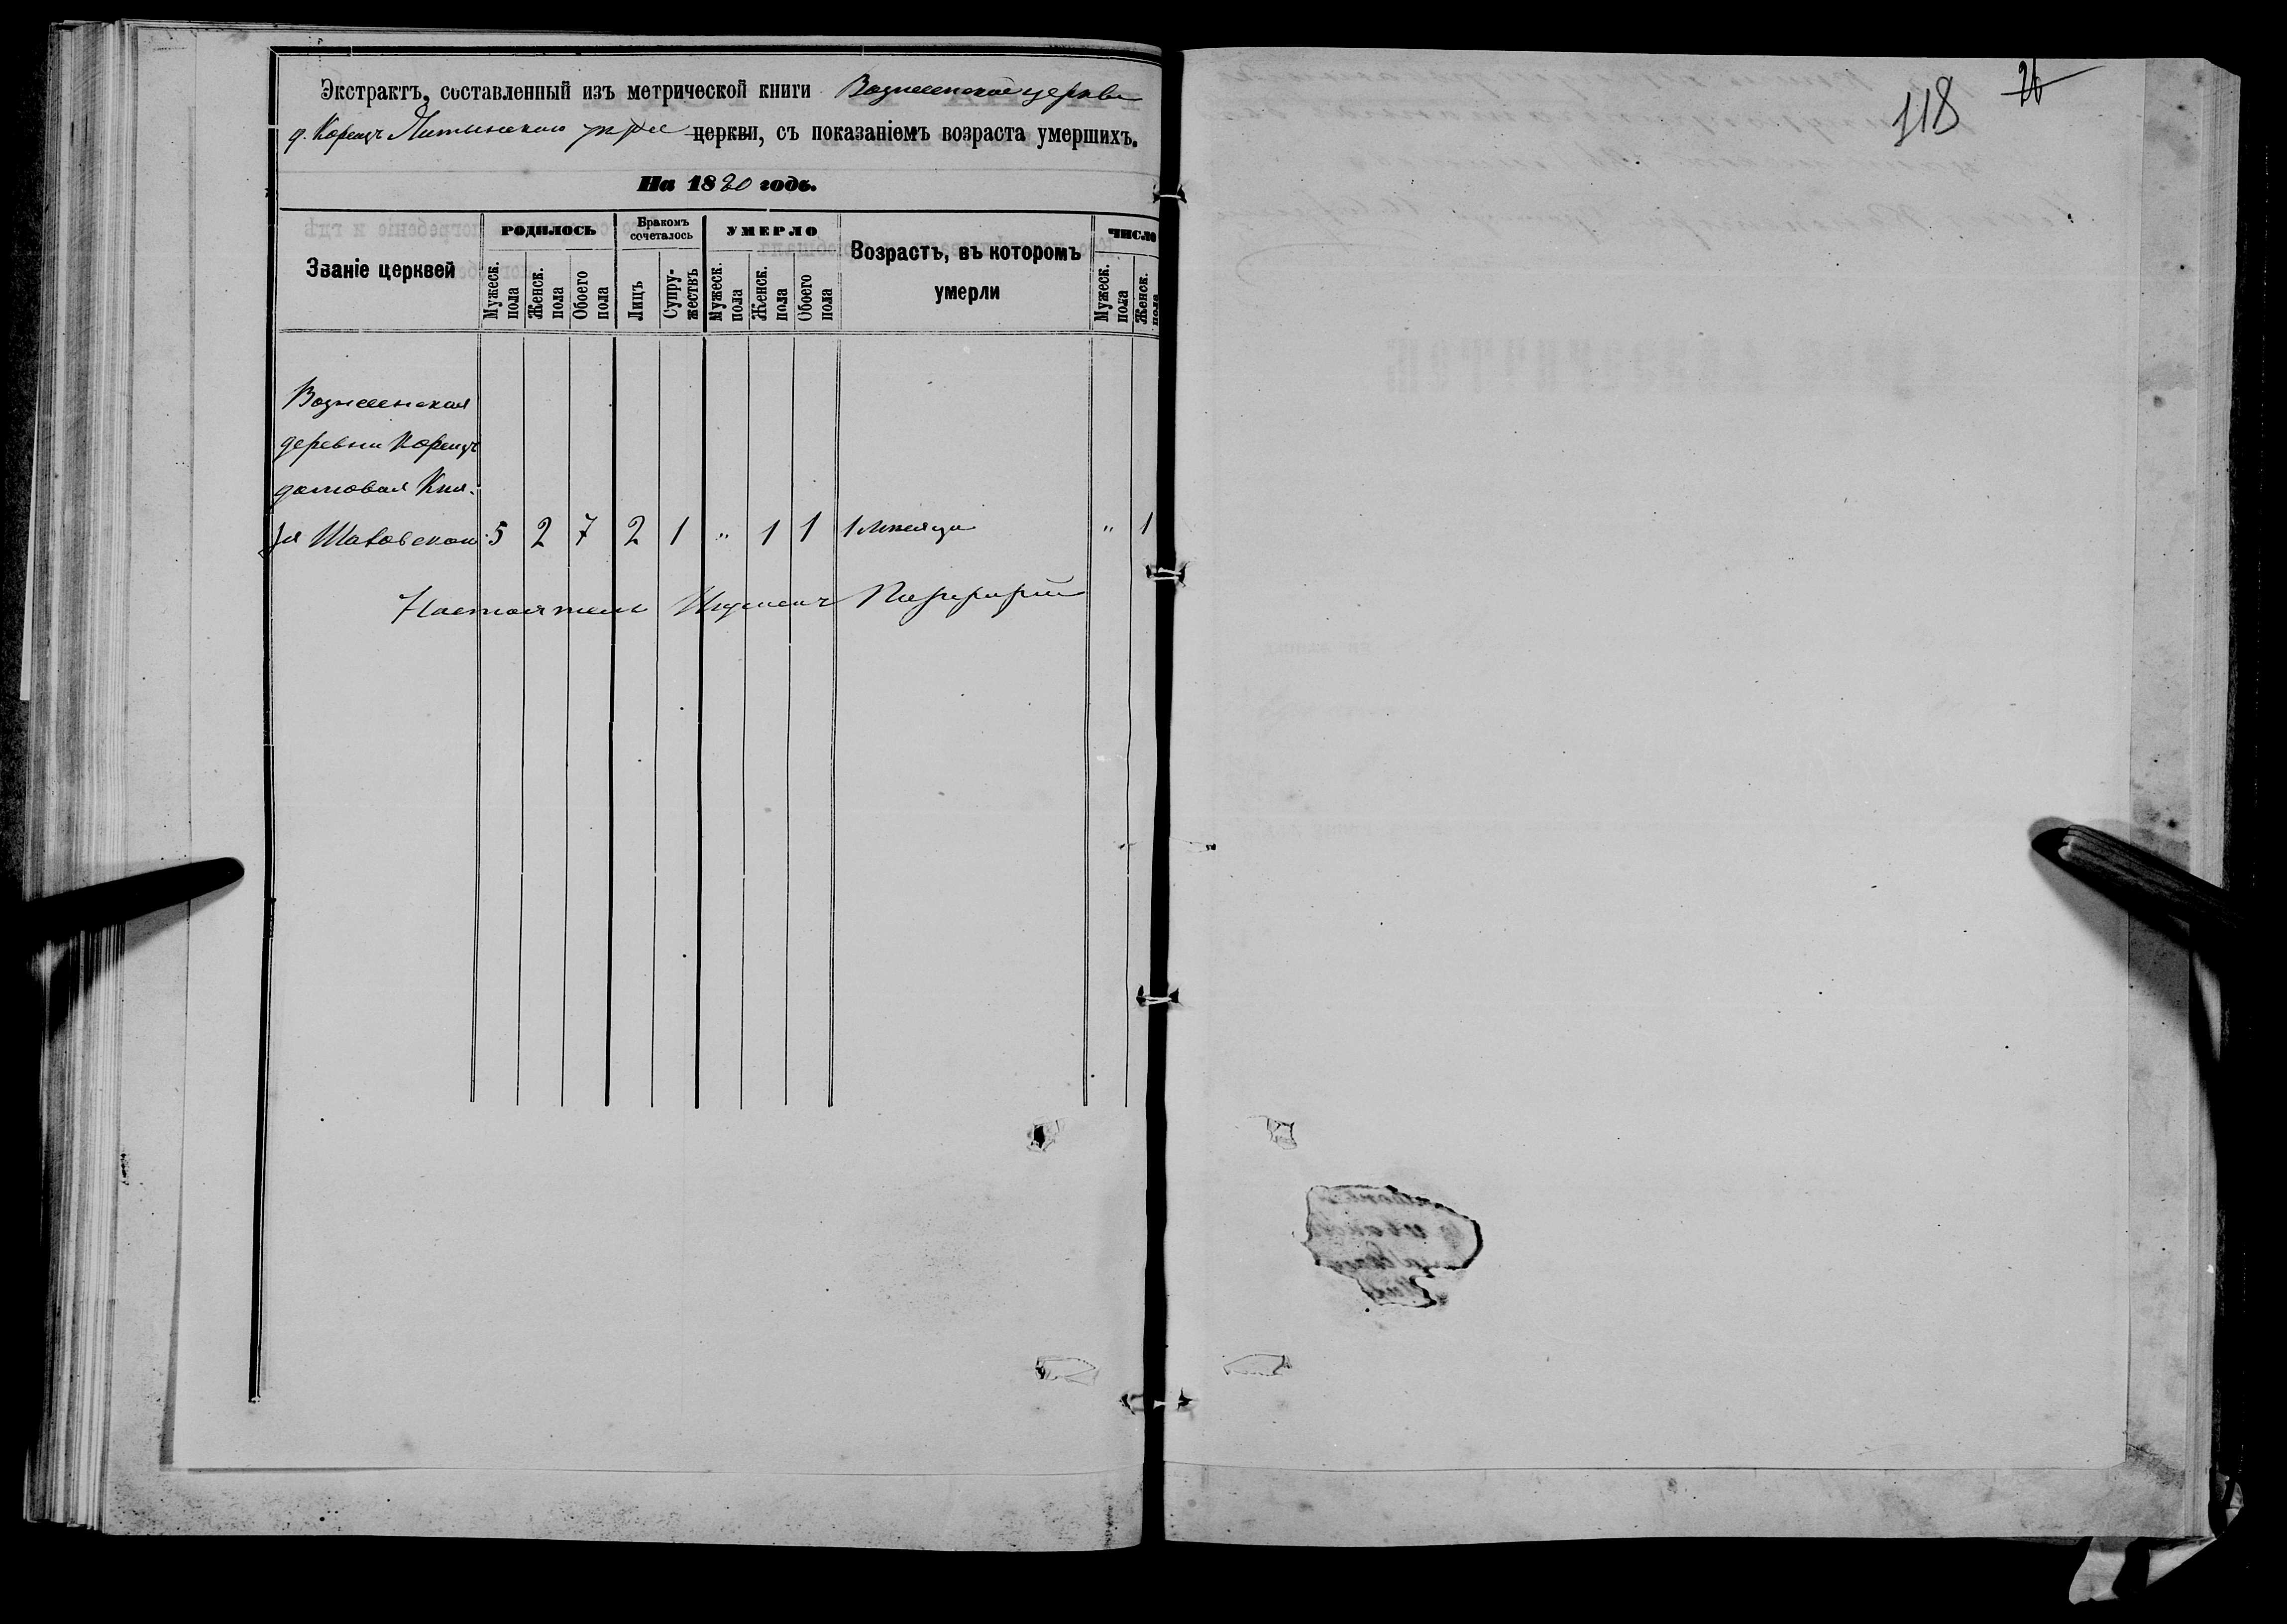 Экстрактъ, составленный изъ метрической книги Вознесенской церкви
д. Корецъ церкви, съ показаніемъ возраста умершихъ.
На 1880 годъ.
Званіе церквей
РОДИЛОСЬ
Мужеск. пола
Женск. пола
Обоего пола
Бракомъ сочеталось
Лицъ
Супружествъ
УМЕРЛО
Мужеск. пола
Женск. пола
Обоего пола
Возрастъ, въ которомъ умерли
ЧИСЛО
Мужеск. пола
Женск. пола
Вознесенская
деревни Корецъ
домовая Кня-
зя Шаховскаго 5 2 7 2 1 " 1 1 1 мѣсяца " 1
Настоятель Игуменъ Порфирій
118
26